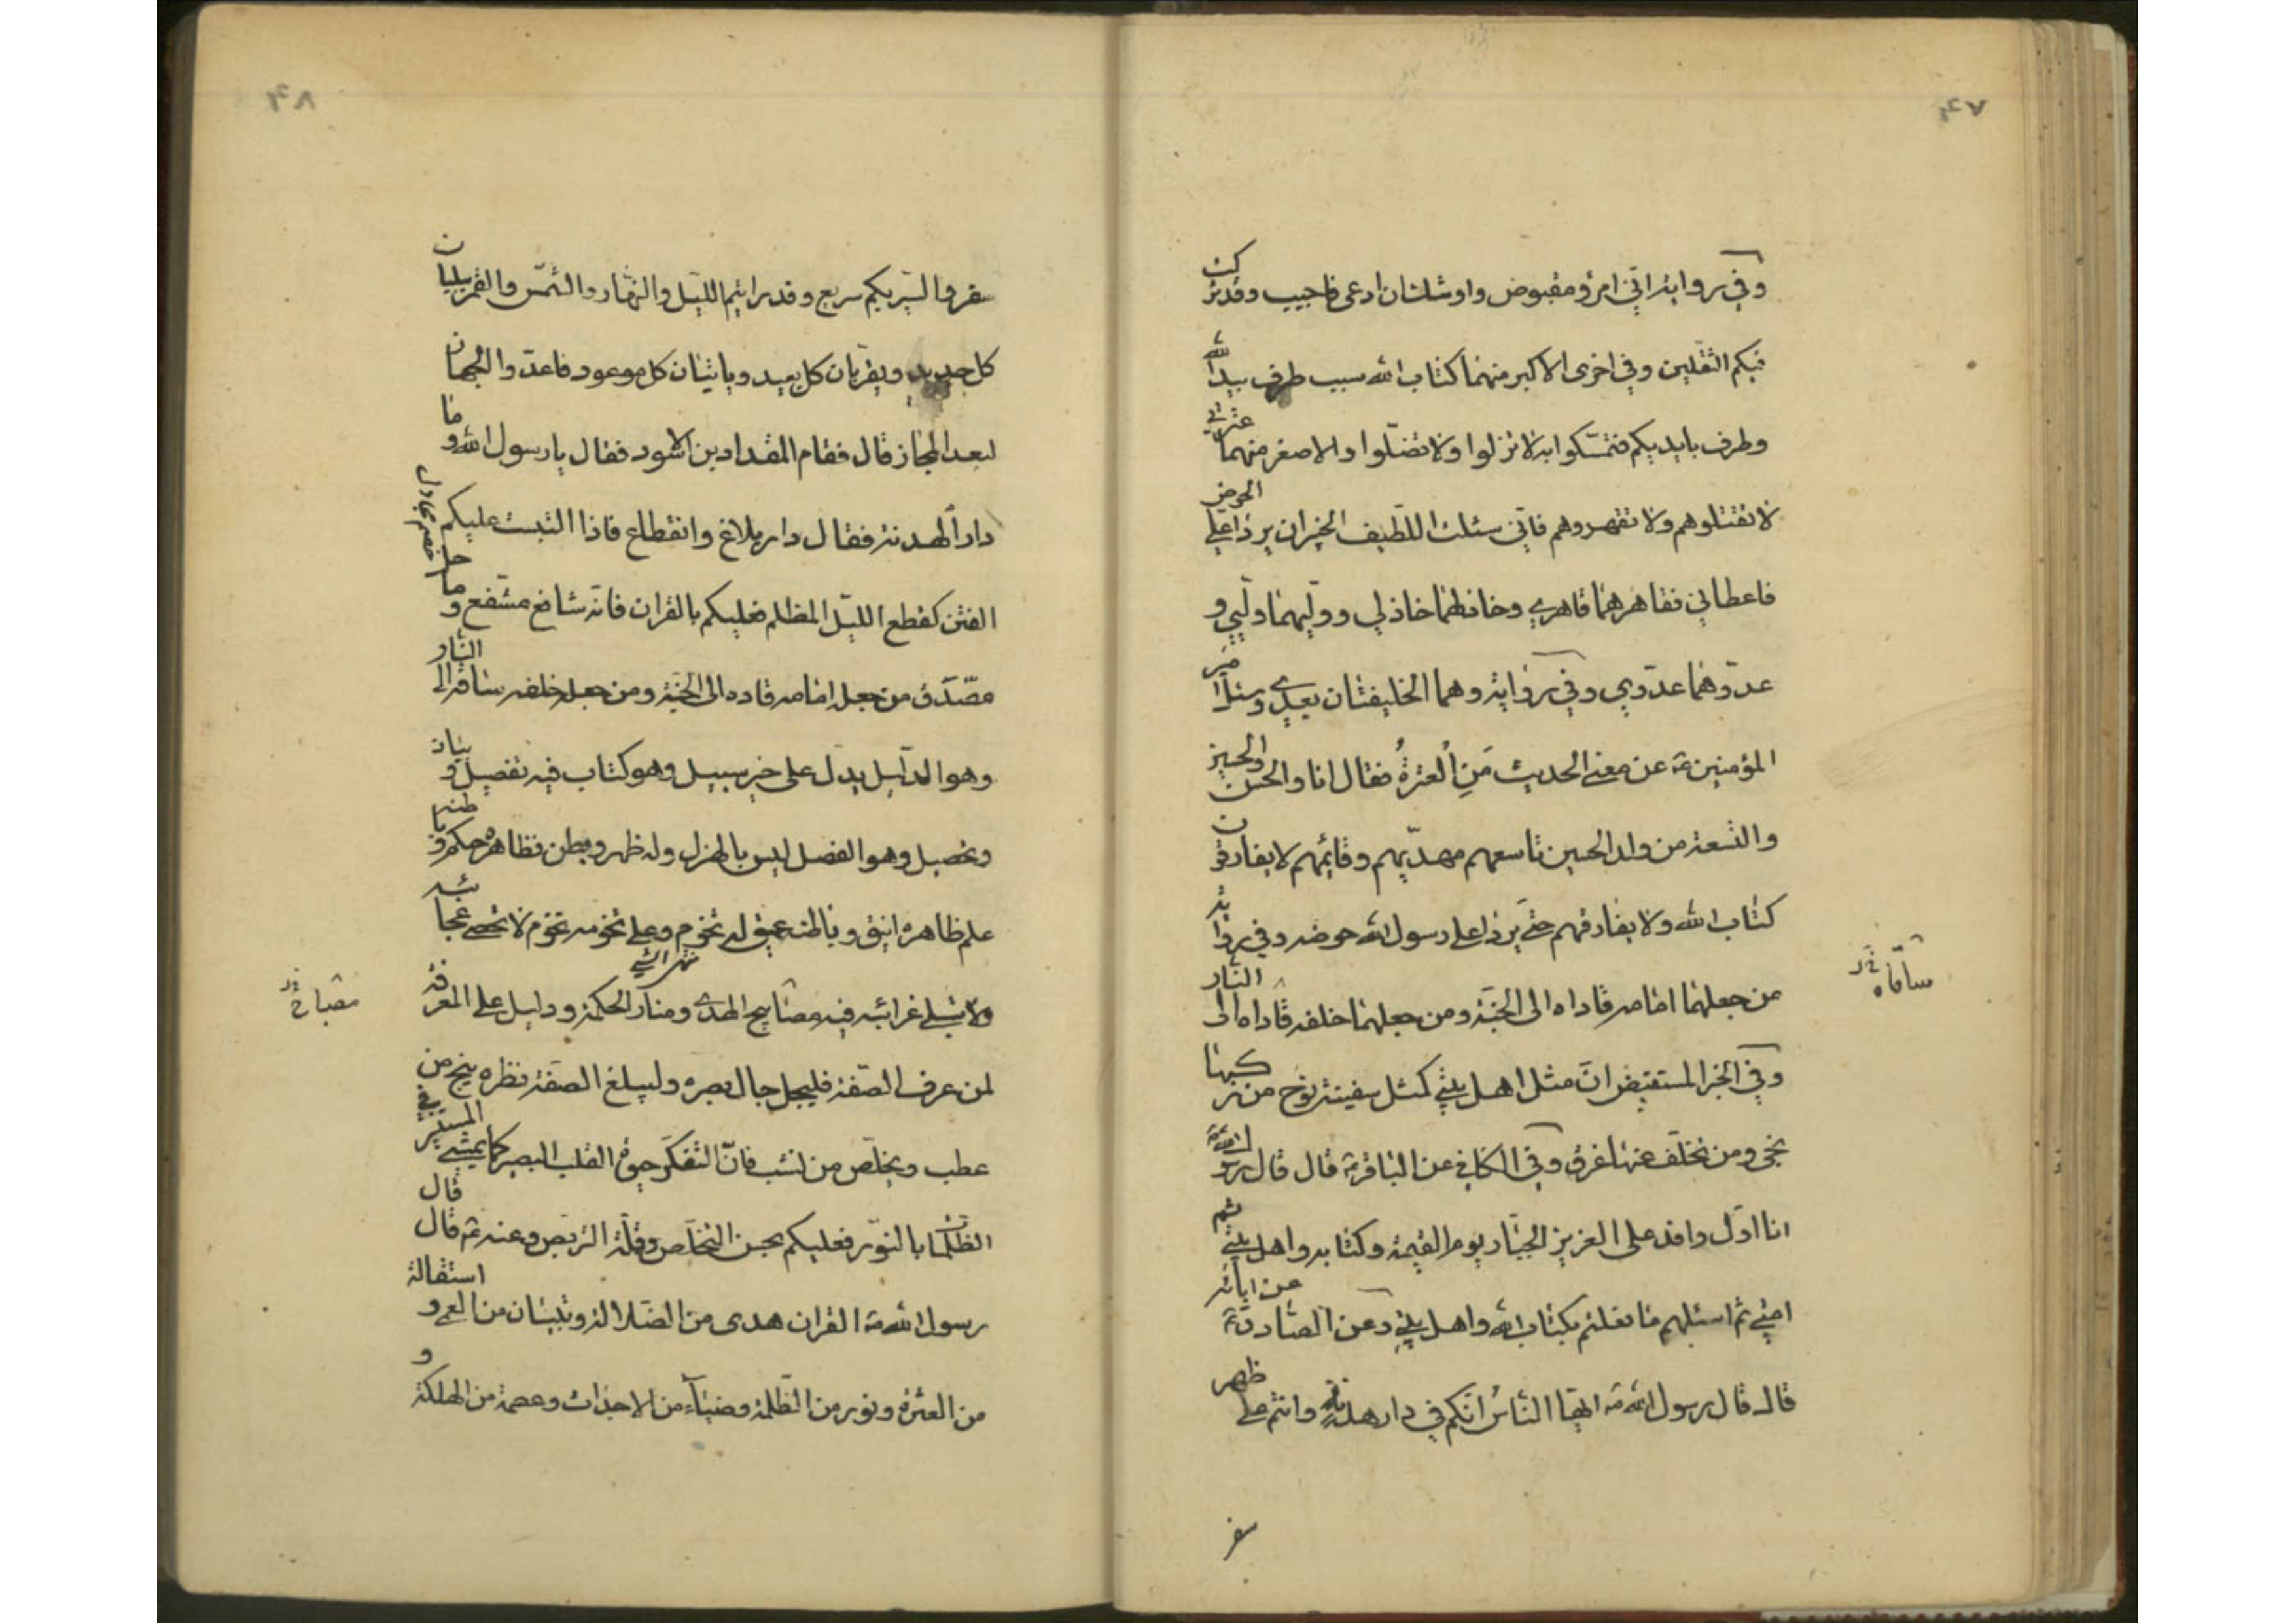 ۴۷
وفي رواية اني امرؤ مقبوض واوشك ان ادعى فاجيب وقد تركت
فيكم الثقلين وفي اخرى الاكبر منهما كتاب الله سبب طرف بيد الله
وطرف بايديكم فتمسكوا به لا تزلوا ولا تضلوا والاصغر منهما عترتي
لا تقتلوهم ولا تقهروهم فاني سئلت اللطيف الخبير ان يردا علي الحوض
فاعطاني فقاهرهما قاهري وخاذلهما خاذلي ووليهما وليي و
عدوهما عدوي وفي رواية وهما الخليفتان بعدي وسئل امير
المؤمنين عن معنى الحديث من العترة فقال انا والحسن والحسين
والتسعة من ولد الحسين تاسعهم مهديهم وقائمهم لا يفارقون
كتاب الله ولا يفارقهم حتى يردا على رسول الله حوضه وفي رواية
من جعلهما امامه قاداه الى الجنة ومن جعلهما خلفه قاداه الى النار
ساقاه
وفي الخبر المستفيض ان مثل اهل بيتي كمثل سفينة نوح من ركبها
نجى ومن تخلف عنها غرق وفي الكافي عن الباقر ع قال قال رسول الله ص
انا اول وافد على العزيز الجبار يوم القيمة وكتابه واهل بيتي ثم
امتي ثم اسئلهم ما فعلتم بكتاب الله واهل بيتي وعن الصادق ع عن ابائه
قال قال رسول الله ص ايها الناس انكم في دار هدنة وانتم على ظهر
سفر
۴۸
سفر والسير بكم سريع وقد رايتم الليل والنهار والشمس والقمر يبليان
كل جديد ويقربان كل بعيد وياتيان كل موعود فاعدوا الجهاز
لبعد المجاز قال فقام المقداد بن الاسود فقال يا رسول الله وما
دار الهدنة فقال دار بلاغ وانقطاع فاذا التبست عليكم
الفتن كقطع الليل المظلم فعليكم بالقران فانه شافع مشفع وماحل
خصم مجادل
مصدق من جعله امامه قاده الى الجنة ومن جعله خلفه ساقه الى النار
وهو الدليل يدل على خير سبيل وهو كتاب فيه تفصيل وبيان
وتحصيل وهو الفصل ليس بالهزل وله ظهر وبطن فظاهره حكم وباطنه
علم ظاهره انيق وباطنه عميق له تخوم وعلى تخومه تخوم لا تحصى عجائبه
منتهى الشي
ولا تبلى غرائبه فيه مصابيح الهدى ومنار الحكمة ودليل على المعرفة
مصباح
لمن عرف الصفة فليجل جال بصره وليبلغ الصفة نظره ينج من
عطب ويتخلص من نشب فان التفكر حيوة القلب البصير كما يمشي المستنير في
الظلمات بالنور فعليكم بحسن التخلص وقلة التربص وعنه ع قال قال
رسول الله ص القران هدى من الضلالة وتبيان من العمى واستقالة
من العثرة ونور من الظلمة وضياء من الاحداث وعصمة من الهلكة و